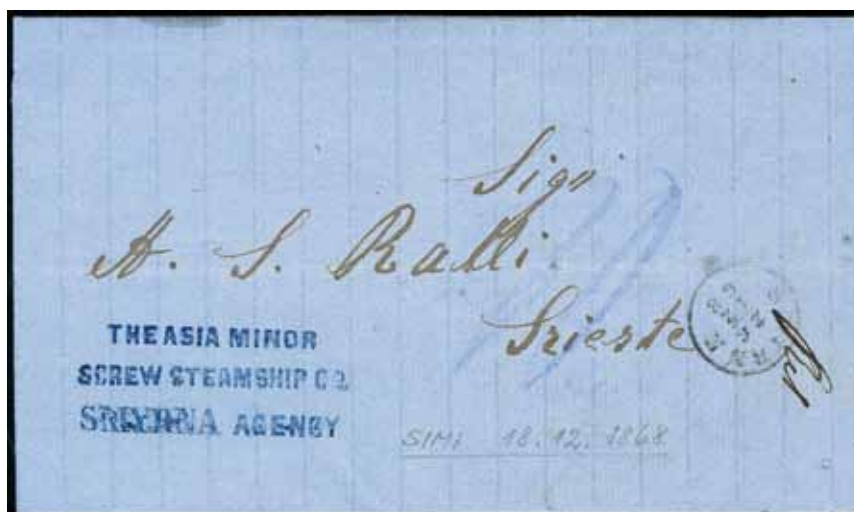 Sigr
A. S. Ralli
Trieste
THE ASIA MINOR
SCREW STEAMSHIP Co.
SMYRNA AGENCY
SIMI 18.12.1868